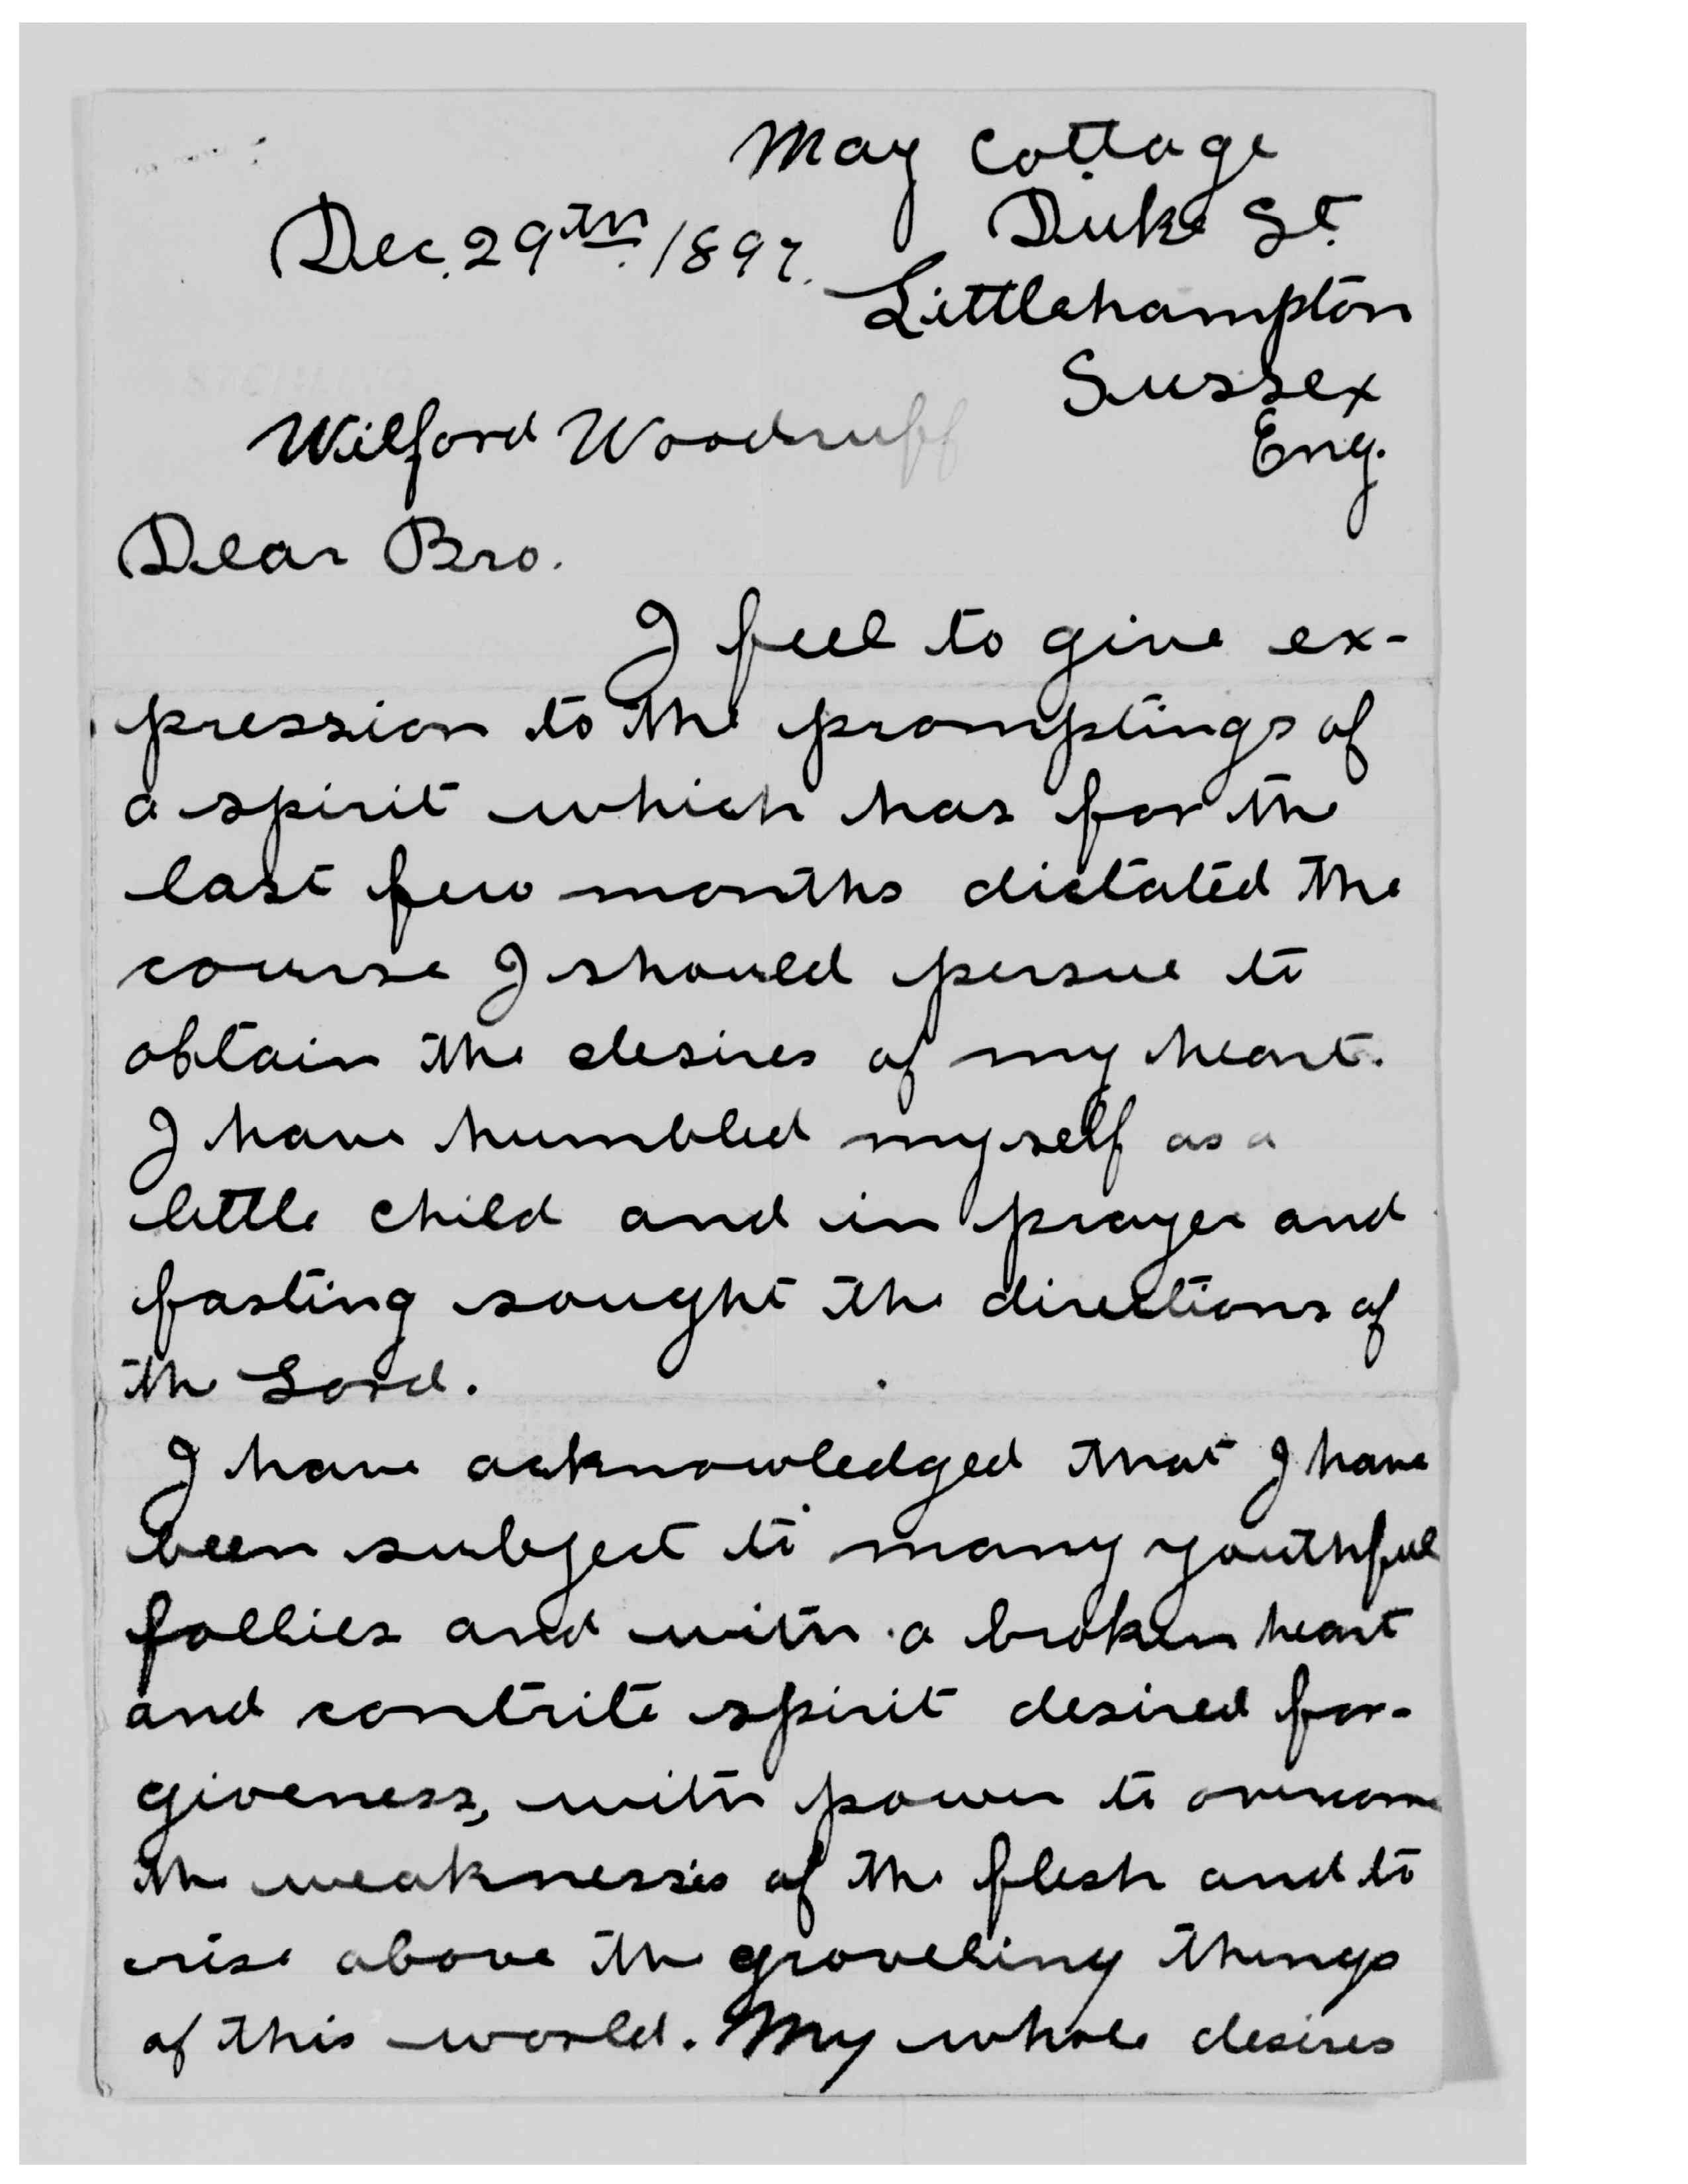 May Cottage
Duke St.
Dec. 29th. 1897.
Littlehampton
Sussex
Eng.
Wilford Woodruff
Dear Bro.
I feel to give ex-
pression to the promptings of
a spirit which has for the
last few months dictated the
course I should persue to
obtain the desires of my heart.
I have humbled myself as a
little child and in prayer and
fasting sought the directions of
the Lord.
I have acknowledged that I have
been subject to many youthful
follies and with a broken heart
and contrite spirit desired for-
giveness, with power to overcome
the weaknesses of the flesh and to
rise above the groveling things
of this world. My whole desires